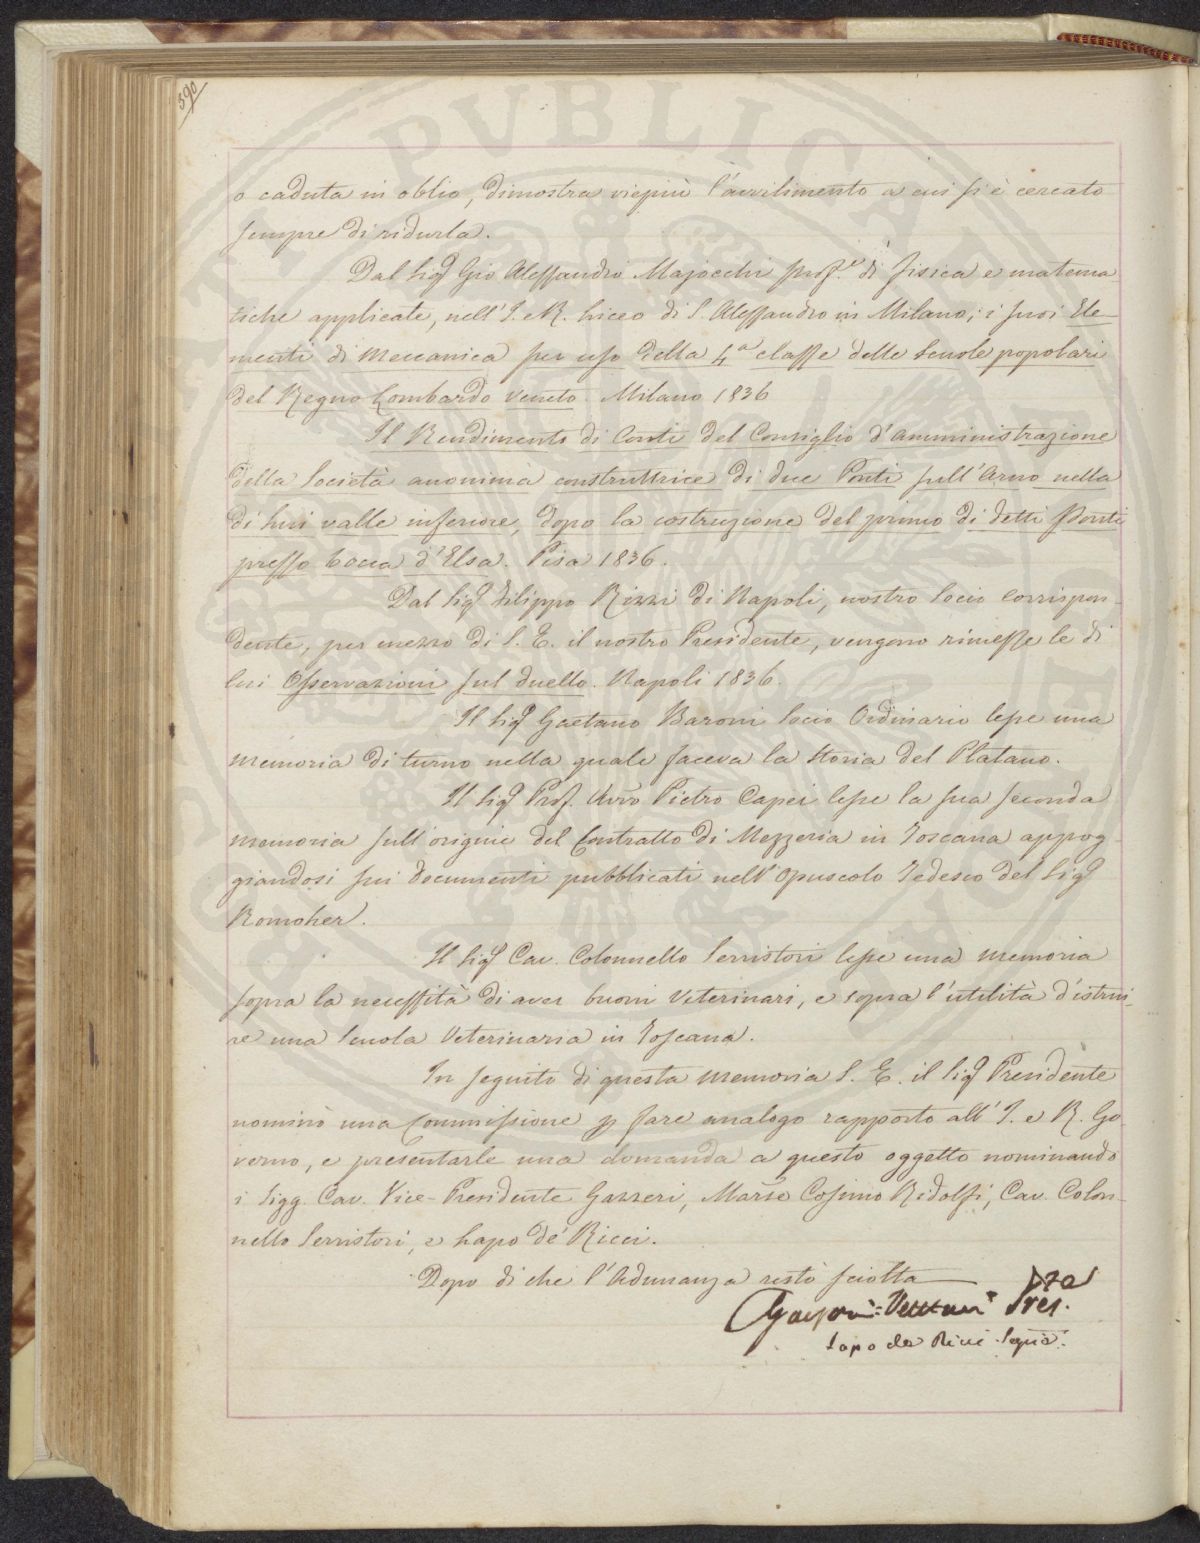 390
o caduta in oblio, dimostra viepiù l'avvilimento a cui si è cercato
sempre di ridurla.
Dal Sig.r Gio Alessandro Majocchi prof.re di fisica e matema
tiche applicate, nell'I. e R. Liceo di S. Alessandro in Milano; i suoi Ele-
menti di Meccanica per uso della 4.a classe delle Scuole popolari
del Regno Lombardo Veneto. Milano 1836
Il Rendimento di Conti del Consiglio d'Amministrazione
della Società anonima construttrice di due Ponti sull'Arno nella
di lui valle inferiore, dopo la costruzione del primo di detti Ponti
presso bocca d'Elsa. Pisa 1836.
Dal Sig.r Filippo Rizzi di Napoli, nostro Socio Corrispon-
dente, per mezzo di S. E. il nostro Presidente, vengono rimesse le di
lui Osservazioni sul duello. Napoli 1836.
Il Sig.r Gaetano Baroni Socio Ordinario lesse una
memoria di turno nella quale faceva la Storia del Platano.
Il Sig.r Prof. Avvo Pietro Capei lesse la sua seconda
memoria sull'origine del Contratto di Mezzeria in Toscana appog
giandosi sui documenti pubblicati nell'Opuscolo Tedesco del Sig.r
Romoher.
Il Sig.r Cav. Colonnello Serristori lesse una memoria
sopra la necessità di aver buoni Veterinari, e sopra l'utilità d'istrui-
re una Scuola Veterinaria in Toscana.
In seguito di questa memoria S. E. il Sig.r Presidente
nominò una Commissione p fare analogo rapporto all'I. e R. Go
verno, e presentarle una domanda a questo oggetto nominando
i Sigg. Cav. Vice-Presidente Gazzeri, Marse Cosimo Ridolfi, Cav. Colon-
nello Serristori, e Lapo de' Ricci.
Dopo di che l'Adunanza restò sciolta
Pres.
Lapo de Ricci Segrio.